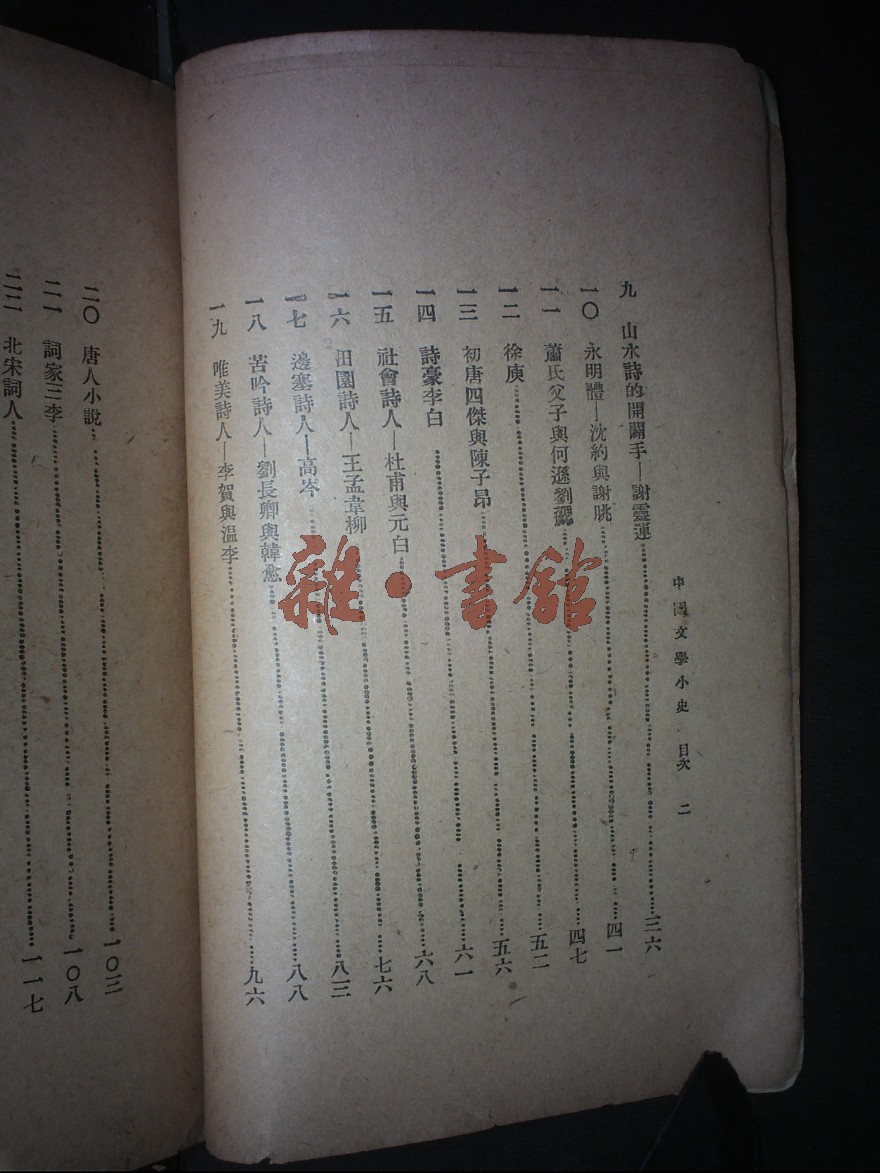 中國文學小史 目次 二
九 山水詩的開闢手—謝靈運……三六
一〇 永明體—沈約與謝朓……四一
一一 蕭氏父子與何遜劉……四七
一二 徐庾……五二
一三 初唐四傑與陳子昂……五六
一四 詩豪李白……六一
一五 社會詩人—杜甫與元白……六八
一六 田園詩人—王孟韋柳……七六
一七 邊塞詩人—高岑……八三
一八 苦吟詩人—劉長卿與韓愈……八八
一九 唯美詩人—李賀與溫李……九六
二〇 唐人小說……一〇三
二一 詞家三李……一〇八
二二 北宋詞人……一一七
雜·書館